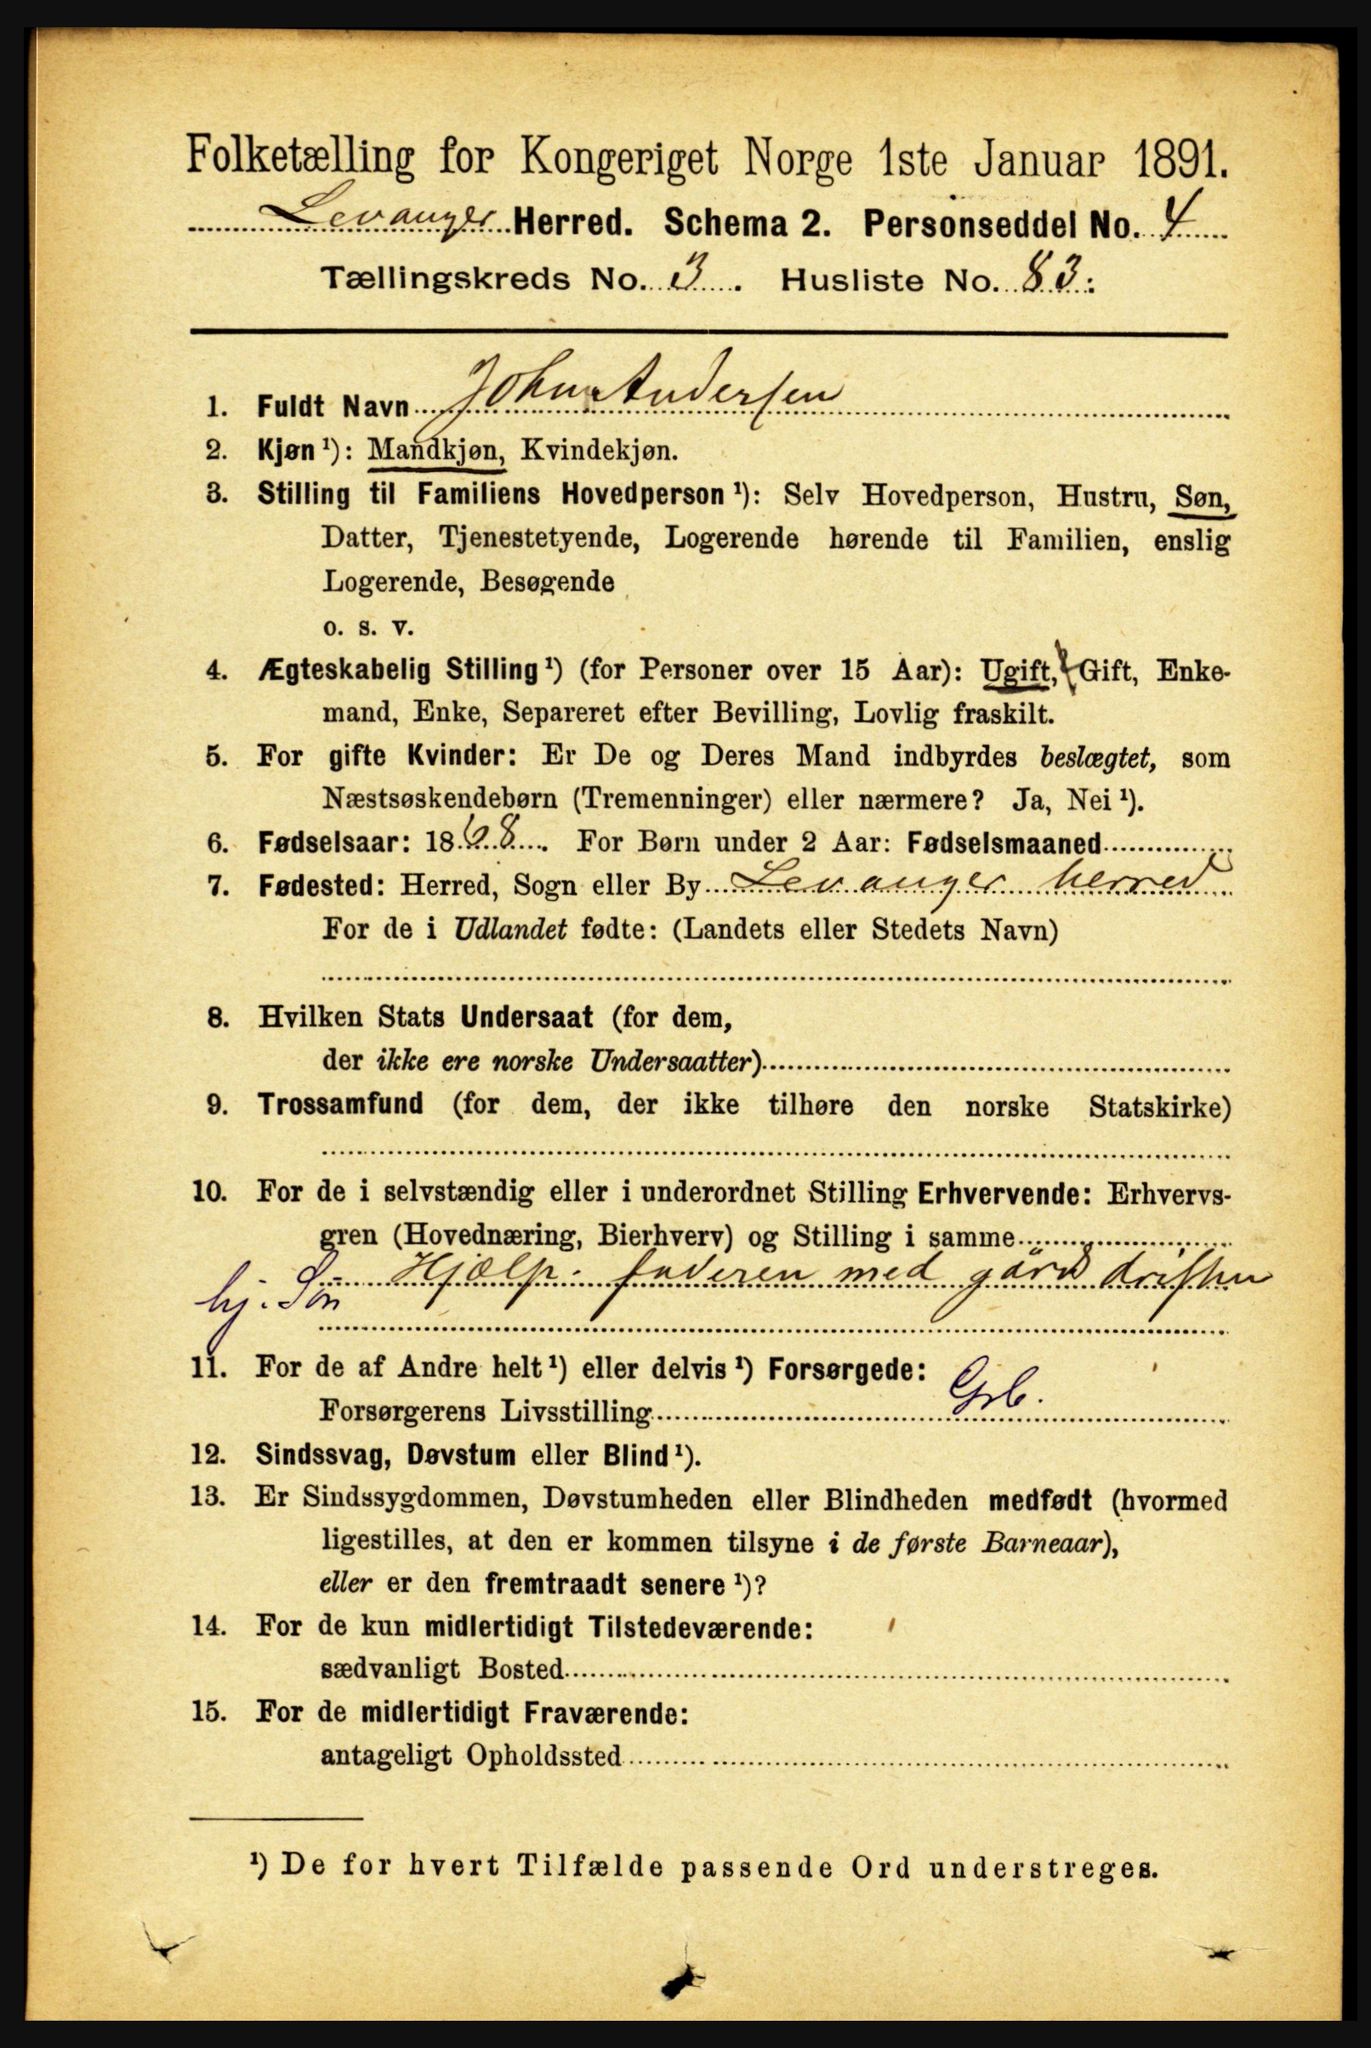 Folketælling for Kongeriget Norge 1ste Januar 1891.
Levanger Herred. Schema 2. Personseddel No. 4
Tællingskreds No. 3. Husliste No. 83.
1. Fuldt Navn John Andersen
2. Kjøn ¹): Mandkjøn, Kvindekjøn.
3. Stilling til Familiens Hovedperson ¹): Selv Hovedperson, Hustru, Søn,
Datter, Tjenestetyende, Logerende hørende til Familien, enslig
Logerende, Besøgende
o. s. v.
4. Ægteskabelig Stilling ¹) (for Personer over 15 Aar): Ugift, Gift, Enke-
mand, Enke, Separeret efter Bevilling, Lovlig fraskilt.
5. For gifte Kvinder: Er De og Deres Mand indbyrdes beslægtet, som
Næstsøskendebørn (Tremenninger) eller nærmere? Ja, Nei ¹).
6. Fødselsaar: 1868. For Børn under 2 Aar: Fødselsmaaned
7. Fødested: Herred, Sogn eller By Levanger herred
For de i Udlandet fødte: (Landets eller Stedets Navn)
8. Hvilken Stats Undersaat (for dem,
der ikke ere norske Undersaatter)
9. Trossamfund (for dem, der ikke tilhøre den norske Statskirke)
10. For de i selvstændig eller i underordnet Stilling Erhvervende: Erhvervs-
gren (Hovednæring, Bierhverv) og Stilling i samme
Hjælp. faderen med gård driften
hj. Søn
11. For de af Andre helt ¹) eller delvis ¹) Forsørgede:
Forsørgerens Livsstilling Grb.
12. Sindssvag, Døvstum eller Blind ¹).
13. Er Sindssygdommen, Døvstumheden eller Blindheden medfødt (hvormed
ligestilles, at den er kommen tilsyne i de første Barneaar),
eller er den fremtraadt senere ¹)?
14. For de kun midlertidigt Tilstedeværende:
sædvanligt Bosted
15. For de midlertidigt Fraværende:
antageligt Opholdssted
¹) De for hvert Tilfælde passende Ord understreges.